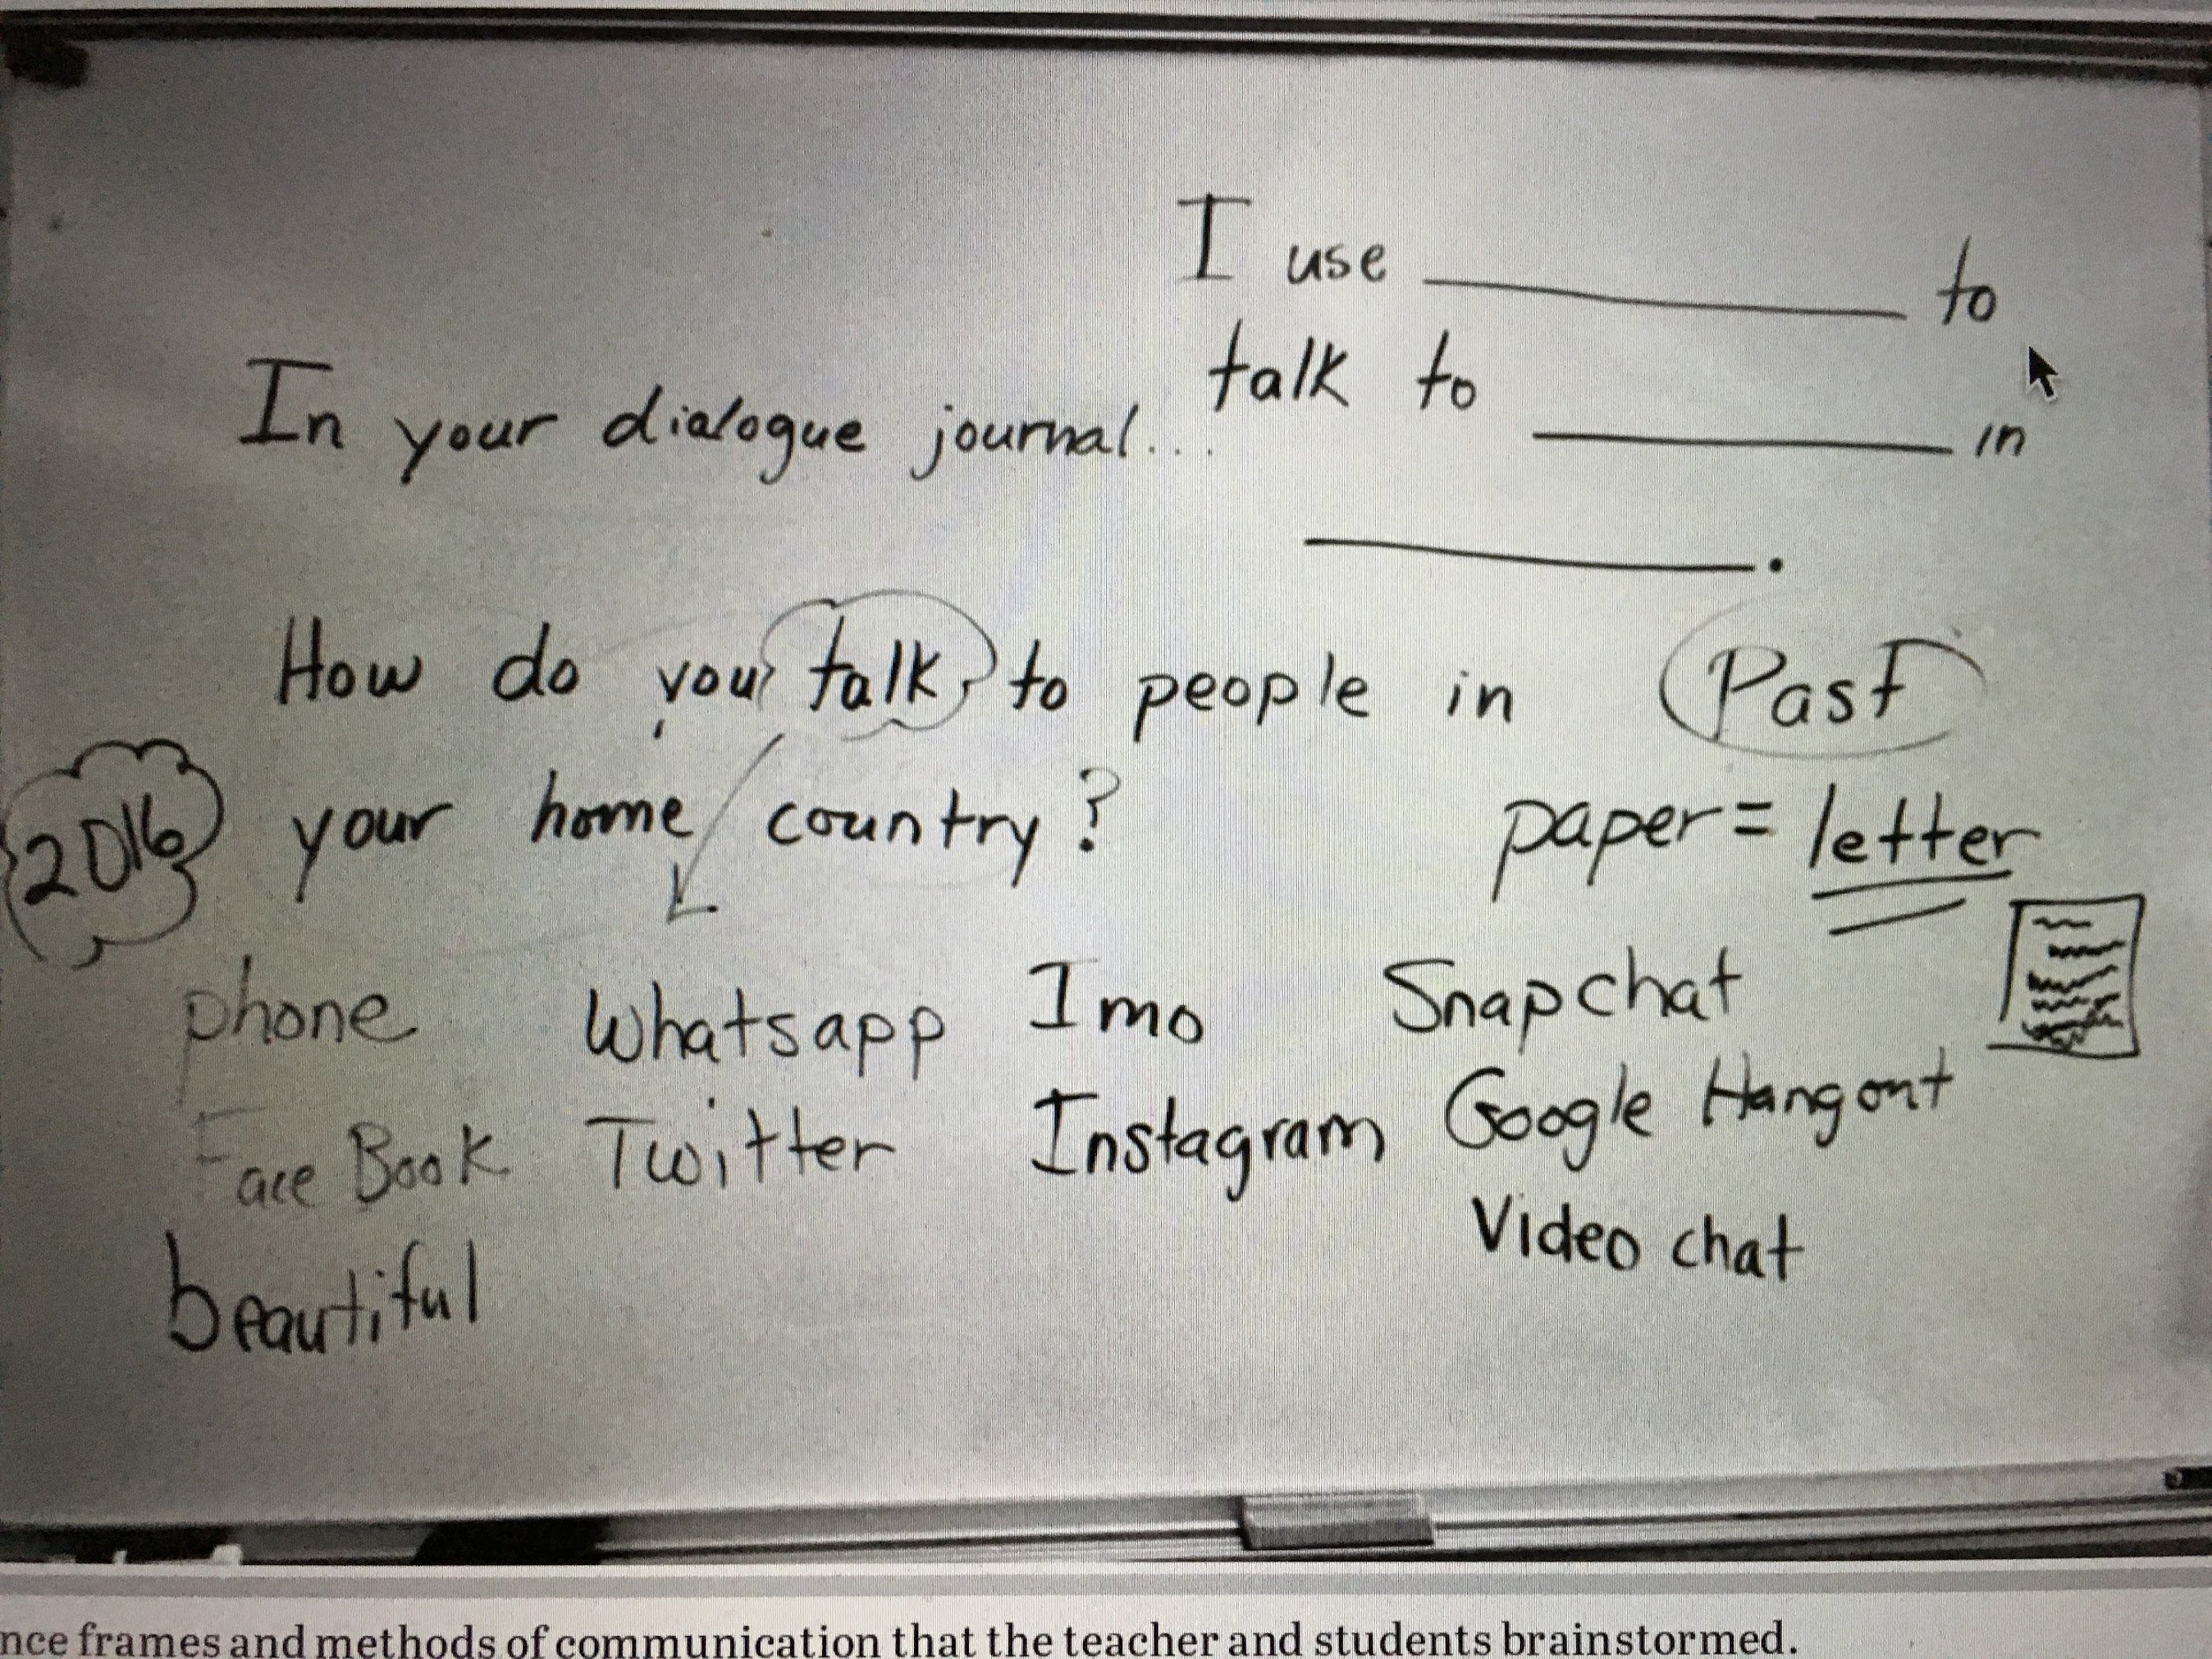 I use ________ to
talk to ________ in
________.
In your dialogue journal...
How do you talk to people in
your home country?
2016
Past
paper = letter
phone Whatsapp Imo Snapchat
Face Book Twitter Instagram Google Hangout
Video chat
beautiful
nce frames and methods of communication that the teacher and students brainstormed.